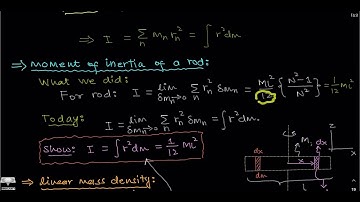 ⇒ I = Σ_n m_n r_n² = ∫r²dm
⇒ moment of inertia of a rod:
What we did:
For rod: I = lim_{δm_n→0} Σ_n r_n² δm_n = Ml²/12 {N²-1/N²} = 1/12 Ml²
Today: I = lim_{δm_n→0} Σ_n r_n² δm_n = ∫r²dm.
Show: I = ∫r²dm = 1/12 Ml²
⇒ linear mass density:
z
M,
dx
dx
x
dm
L